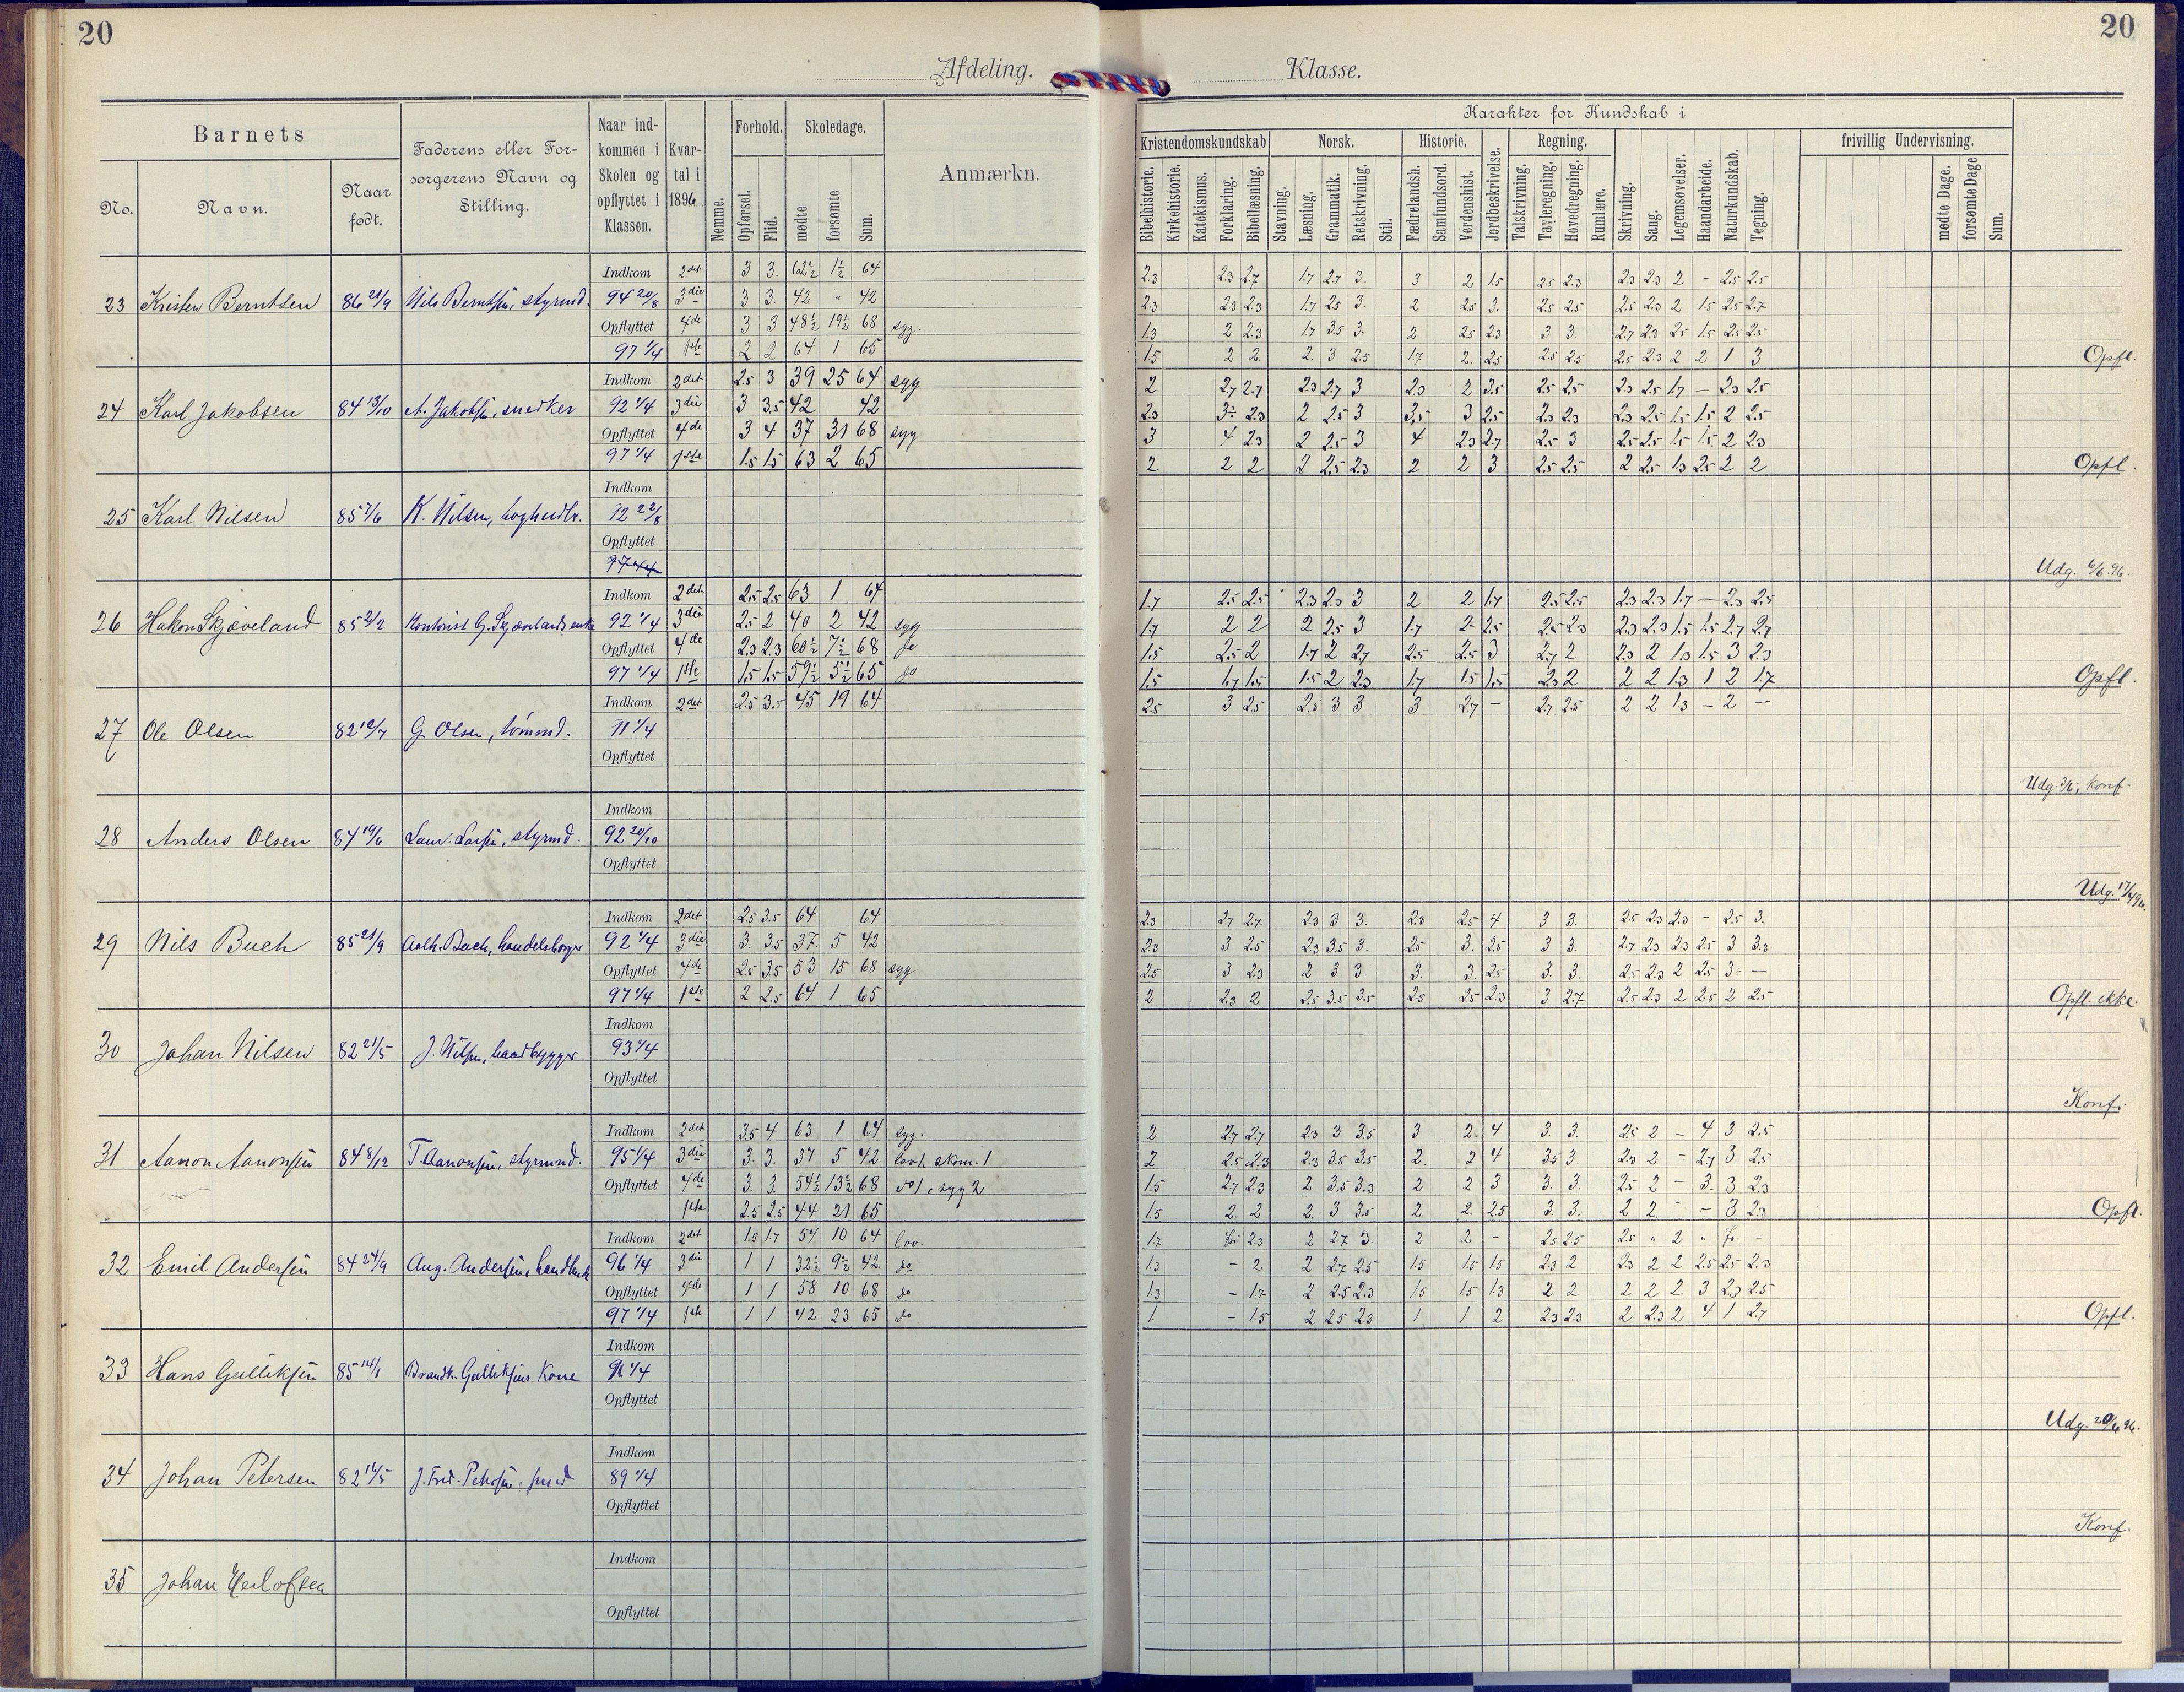 20
20
Afdeling.
Klasse.
Barnets
Faderens eller Forsørgerens Navn og Stilling.
Naar indkommen i Skolen og opflyttet i Klassen.
Kvartal i 1896
Forhold.
Skoledage.
Anmærkn.
No.
Navn.
Naar født.
Nemme.
Opførsel.
Flid.
mødte
forsømte
Sum.
Karakter for Kundskab i
Kristendomskundskab
Norsk.
Historie.
Regning.
frivillig Undervisning.
Bibelhistorie.
Kirkehistorie.
Katekismus.
Forklaring.
Bibellæsning.
Stavning.
Læsning.
Grammatik.
Retskrivning.
Stil.
Fædrelandsh.
Samfundsord.
Verdenshist.
Jordbeskrivelse.
Talskrivning.
Tavleregning.
Hovedregning.
Rumlære.
Skrivning.
Sang.
Legemsøvelser.
Haandarbeide.
Naturkundskab.
Tegning.
mødte Dage.
forsømte Dage
Sum.
Indkom 2det 3 3. 62½ 1½ 64 2.3 2.3 2.7 1.7 2.7 3. 3 2 1.5 2.5 2.3 2.3 2.3 2 - 2.5 2.5
23 Kristen Berntsen 86 21/9 Nils Berntsen, styrmd. 94 20/8 3die 3 3. 42 " 42 2.3 2.3 2.3 1.7 2.5 3. 2 2.5 3. 2.5 2.5 2.5 2.3 2 1.5 2.5 2.7
Opflyttet 4de 3 3 48½ 19½ 68 syg. 1.3 2 2.3 1.7 3.5 3. 2 2.5 2.3 3 3. 2.7 2.3 2.5 1.5 2.5 2.5
97 1/4 1ste 2 2 64 1 65 1.5 2 2. 2. 3 2.5 1.7 2. 2.5 2.5 2.5 2.5 2.3 2 2 1 3 Opfl.
Indkom 2det 2.5 3 39 25 64 syg 2 2.7 2.7 2.3 2.7 3 2.3 2 3.5 2.5 2.5 2.3 2.5 1.7 - 2.3 2.5
24 Karl Jakobsen 84 13/10 A. Jakobsen, snedker 92 1/4 3die 3 3.5 42 42 2.3 3÷ 2.3 2 2.5 3 3.5 3 2.5 2.3 2.3 2.3 2.5 1.5 1.5 2 2.5
Opflyttet 4de 3 4 37 31 68 syg 3 4 2.3 2 2.5 3 4 2.3 2.7 2.5 3 2.5 2.5 1.5 1.5 2 2.3
97 1/4 1ste 1.5 1.5 63 2 65 2 2 2 2 2.5 2.3 2 2 3 2.5 2.5 2 2.5 1.3 2.5 2 2 Opfl.
Indkom
25 Karl Nilsen 85 7/6 K. Nilsen, 92 22/8
Opflyttet
Udg. 6/6.96.
Indkom 2det 2.5 2.5 63 1 64 1.7 2.5 2.5 2.3 2.3 3 2 2 1.7 2.5 2.5 2.3 2.3 1.7 - 2.3 2.5
26 Hakon Skjæveland 85 21/2 Kontorist G. Skjævelands enke 92 1/4 3die 2.5 2 40 2 42 syg 1.7 2 2 2 2.5 3 1.7 2 2.5 2.5 2.3 2.3 2.3 1.5 1.5 2.7 2.7
Opflyttet 4de 2.3 2.3 60½ 7½ 68 do 1.5 2.5 2 1.7 2 2.7 2.5 2.5 3 2.7 2 2.3 2 1.3 1.5 3 2.3
97 1/4 1ste 1.5 1.5 59½ 5½ 65 do 1.5 1.7 1.5 1.5 2 2.3 1.7 1.5 1.5 2.3 2 2 2 1.3 1 2 1.7 Opfl.
Indkom 2det 2.5 3.5 45 19 64 2.5 3 2.5 2.5 3 3 3 2.7 - 2.7 2.5 2 2 1.3 - 2 -
27 Ole Olsen 82 G. Olsen, tømmd. 91 1/4
Opflyttet
Udg. konf.
Indkom
28 Anders Olsen 84 19/6 Laur. Larsen, styrmd. 92 20/10
Opflyttet
Udg. 17/4 96.
Indkom 2det 2.5 3.5 64 64 2.3 2.7 2.7 2.3 3 3. 2.3 2.5 4 3 3. 2.5 2.3 2.3 - 2.5 3.
29 Nils Buch 85 21/9 Buch, handelsborger 92 1/4 3die 3. 3.5 37. 5 42 2.3 3 2.5 2.3 3.5 3. 2.5 3. 2.5 3 3. 2.7 2.3 2.3 2.5 3 3.3
Opflyttet 4de 2.5 3.5 53 15 68 syg 2.5 3 2.3 2 3 3. 3. 3. 2.5 3. 3. 2.5 2.3 2 2.5 3÷ -
97 1/4 1ste 2 2.5 64 1 65 2 2.3 2 2.5 3.5 3.5 2.5 2.5 2.3 3 2.7 2.5 2.3 2 2.5 2 2.5 Opfl. ikke.
Indkom
30 Johan Nilsen 82 21/5 J. Nilsen, baadbygger 93 1/4
Opflyttet
Konf.
Indkom 2det 3.5 4 63 1 64 syg. 2 2.7 2.7 2.3 3 3.5 3 2. 4 3. 3. 2.5 2 - 4 3 2.5
31 Aanon Aanonsen 84 8/12 T. Aanonsen, styrmand. 95 1/4 3die 3. 3. 37 5 42 lov 1. skom. 1 2 2.5 2.3 2.3 3.5 3.5 2. 2 4 3.5 3. 2.3 2 - 2.7 3 2.5
Opflyttet 4de 3. 3. 54½ 13½ 68 do 1, syg 2 1.5 2.7 2.3 2 3.5 3.3 2 2 3 3. 3. 2.5 2 - 3. 3 2.3
1ste 2.5 2.5 44 21 65 1.5 2. 2 2. 3 3.5 2 2. 2.5 3. 3. 2 2. - - 3 2.3 Opfl.
Indkom 2det 1.5 1.7 54 10 64 lov. 1.7 fri 2.3 2 2.7 3. 2 2 - 2.5 2.5 2.5 " 2 " fr. -
32 Emil Andersen 84 24/9 Aug. Andersen, 96 1/4 3die 1 1 32½ 9½ 42. do 1.3 - 2 2 2.7 2.5 1.5 1.5 1.5 2.3 2 2.3 2 2 2.5 2.5 2.3
Opflyttet 4de 1 1 58 10 68 do 1.3 - 1.7 2 2.5 2.3 1.5 1.5 1.3 2 2 2 2 2 3 2.3 2.5
97 1/4 1ste 1 1 42 23 65 do 1 - 1.5 2 2.5 2.3 1 1 2 2.3 2.3 2 2.3 2 4 1 2.7 Opfl.
Indkom
33 Hans Gulliksen 85 14/1 Brandk. Gulliksens Kone 91 1/4
Opflyttet
Udg. 96.
Indkom
34 Johan Petersen 82 J. Fred. Petersen, smed 89 1/4
Opflyttet
Konf.
Indkom
35 Johan Herlofsen
Opflyttet